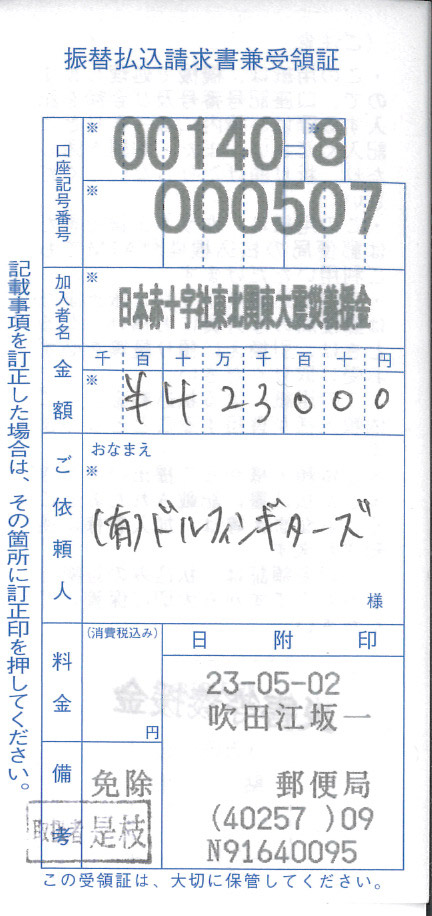 振替払込請求書兼受領証
口座記号番号
※
00140=8
※
000507
加入者名
※
日本赤十字社東北関東大震災義援金
金額
千 百 十 万 千 百 十 円
※
¥423000
ご依頼人
おなまえ
※
(有)ドルフィンギターズ
様
料金
(消費税込み)
円
日附印
23-05-02
吹田江坂一
郵便局
(40257 )09
N91640095
備考
免除
取扱者 是枝
記載事項を訂正した場合は、その箇所に訂正印を押してください。
この受領証は、大切に保管してください。